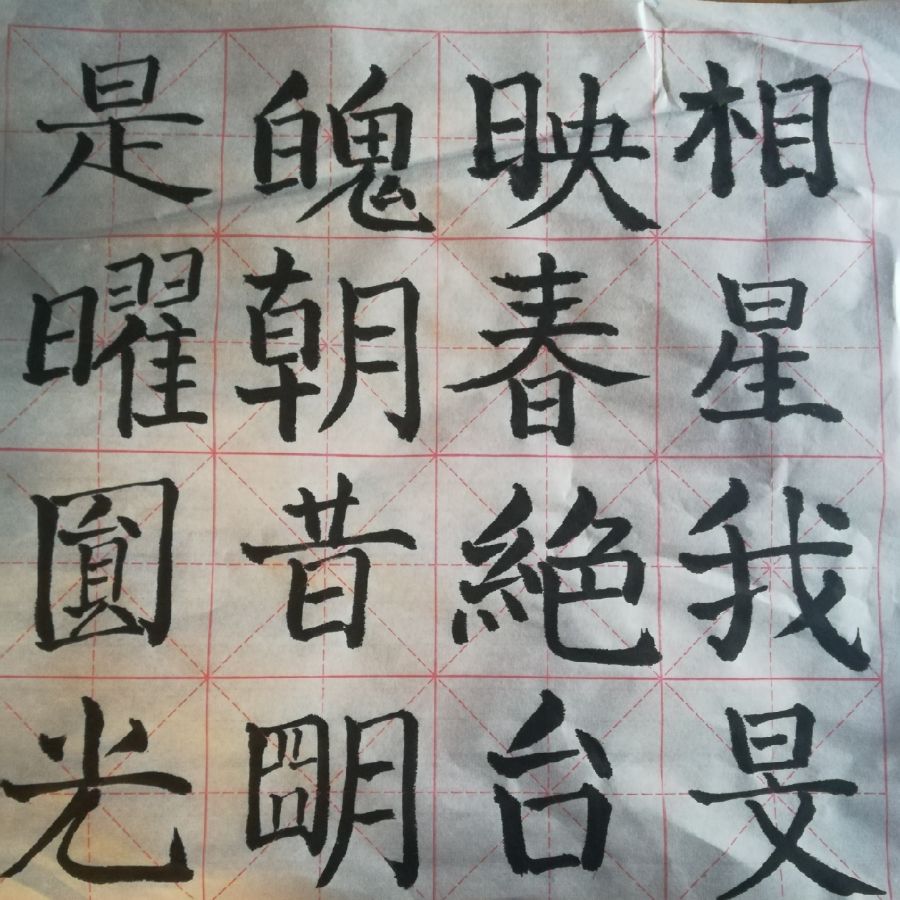 相星我旻
映春絶台
魄朝昔朙
是曜圓光